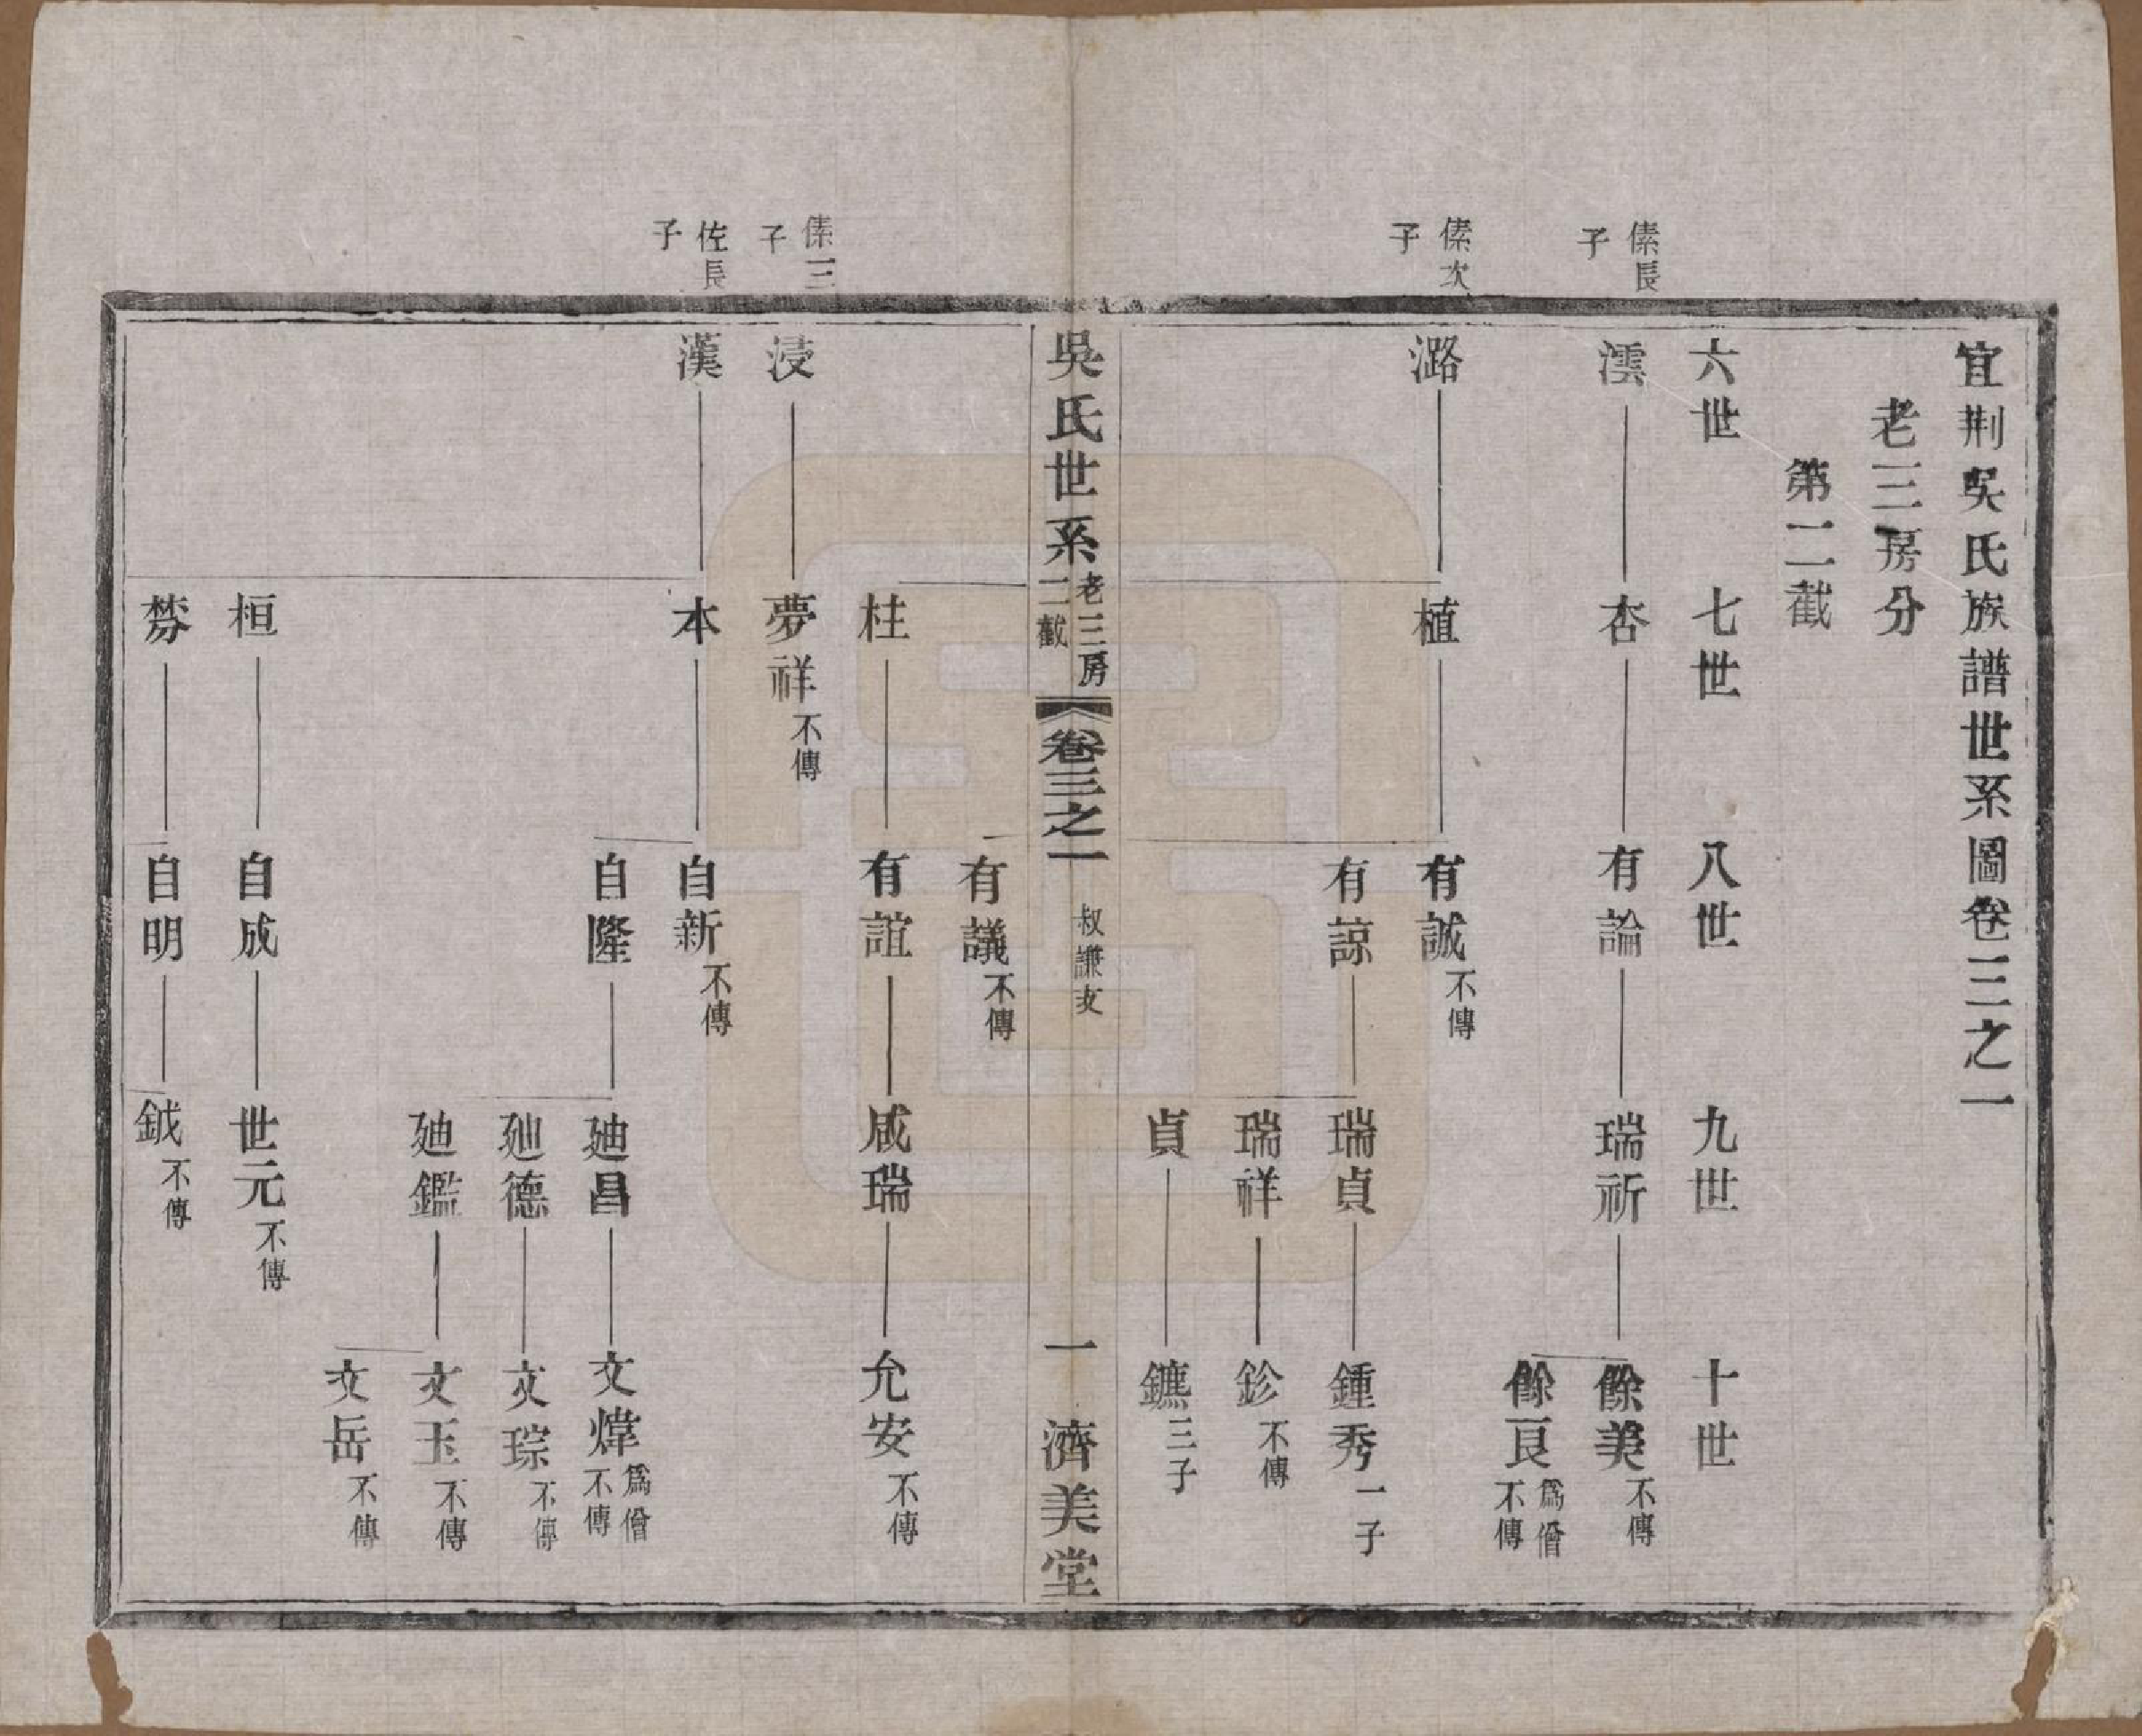 宜荆吳氏族譜世系圖卷三之一
老三房分
第二截
六世
七世
八世
九世
十世
傃長
子
澐
杏
有論
瑞祈
餘美
不傳
餘良
爲僧
不傳
傃次
子
潞
植
有誠
不傳
有諒
瑞貞
鍾秀
一子
瑞祥
鉁
不傳
貞
鑣
三子
吳氏世系
老三房
二截
卷三之一
叔謙支
一
濟美堂
有議
不傳
桂
有誼
咸瑞
允安
不傳
傃三
子
浸
夢祥
不傳
佐長
子
漢
本
自新
不傳
自隆
廸昌
文煒
爲僧
不傳
廸德
文琮
不傳
廸鑑
文玉
不傳
文岳
不傳
桓
自成
世元
不傳
棼
自明
鉞
不傳